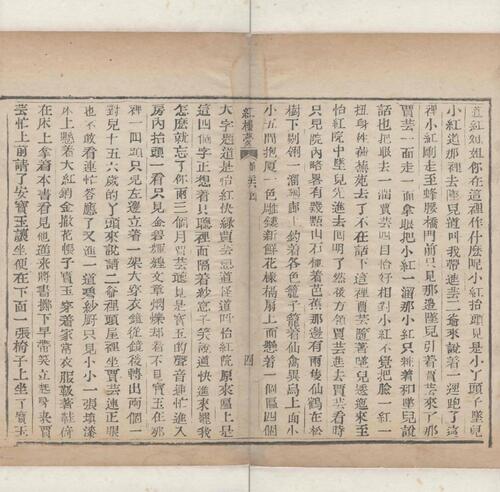 道紅姐姐你在這裡作什麼呢小紅抬頭見是小丫頭子墜兒
小紅道那裡去墜兒道叫我帶進芸二爺來說着一逕跑了這
裡小紅剛走至蜂腰橋門前只見那邊墜兒引着賈芸來了那
賈芸一面走一面拿眼把小紅一溜那小紅只粧着和墜兒說
話也把眼去一溜賈芸四目恰好相對小紅不覺把臉一紅一
扭身往蘅蕪苑去了不在話下這裡賈芸隨着墜兒逶迤來至
怡紅院中墜兒先進去囘明了然後方領賈芸進去賈芸看時
只見院內略畧有幾點山石種着芭蕉那邊有兩隻仙鶴在松
樹下剔翎一溜廻廊上吊着各色籠子籠着仙禽異鳥上面小
小五間抱厦一色雕鏤新鮮花樣槅扇上面懸着一個匾四個
紅樓夢 第廿六囘 四
大字題道是怡紅快綠賈芸想道怪道叫怡紅院原來匾上是
這四個字正想着只聽裡面隔着紗窓子笑說道快進來罷我
怎麼就忘了你兩三個月賈芸聽見是寶玉的聲音連忙進入
房內抬頭一看只見金碧輝煌文章熌爍却看不見寶玉在那
裡一囘頭只見左邊立着一架大穿衣鏡從鏡後轉出兩個一
對兒十五六歲的丫頭來說請二爺裡頭屋裡坐賈芸連正眼
也不敢看連忙答應了又進一道碧紗厨只見小小一張塡漆
床上懸着大紅銷金撒花帳子寶玉穿着家常衣服靸着鞋倚
在床上拿着本書看見他進來將書擲下早帶笑立起身來賈
芸忙上前請了安寶玉讓坐便在下面一張椅子上坐了寶玉